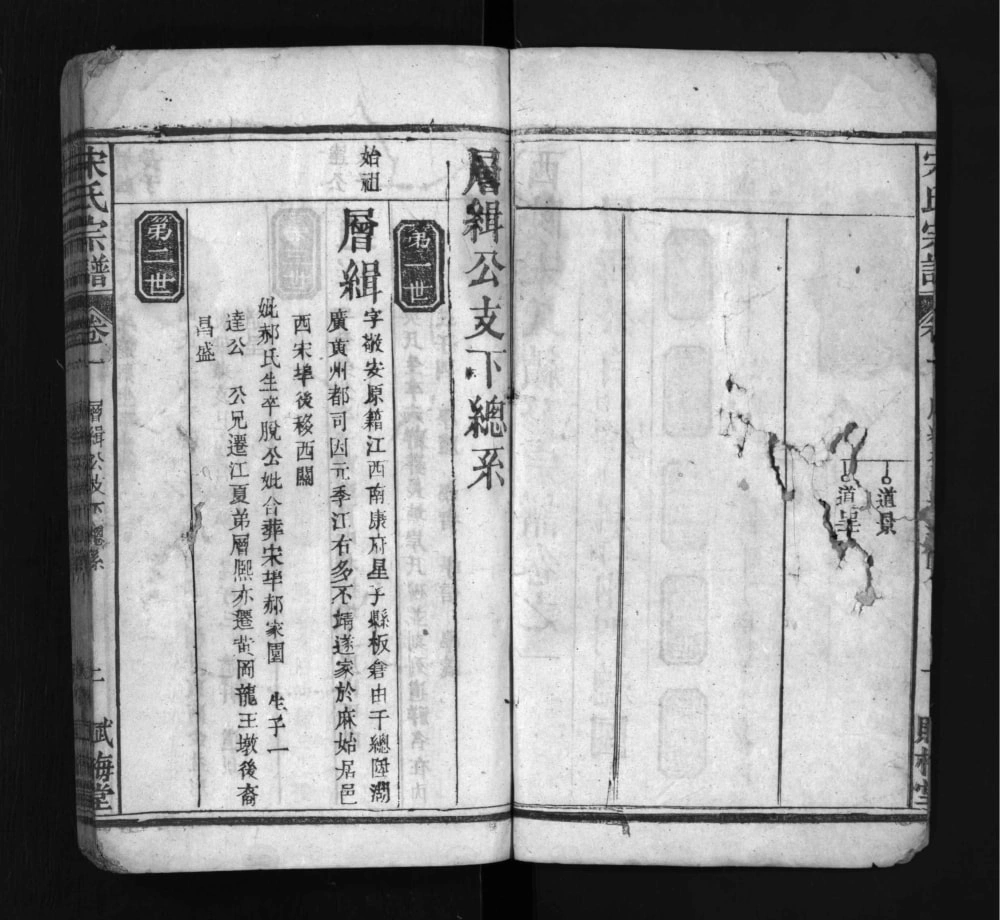 宋氏宗譜
卷一
道景
道
層緝公支下總系
第一世
始祖
層緝
字敬安原籍江西南康府星子縣板倉由千總陞湖
廣黃州都司因元季江右多不靖遂家於麻始居邑
西宋埠後移西關
妣郝氏生卒脫公妣合葬宋埠郝家園 生子一
達公 公兄遷江夏弟層熙亦遷黃岡龍王墩後裔
昌盛
第二世
宋氏宗譜
卷一
層緝公支下總系
二
賦梅堂